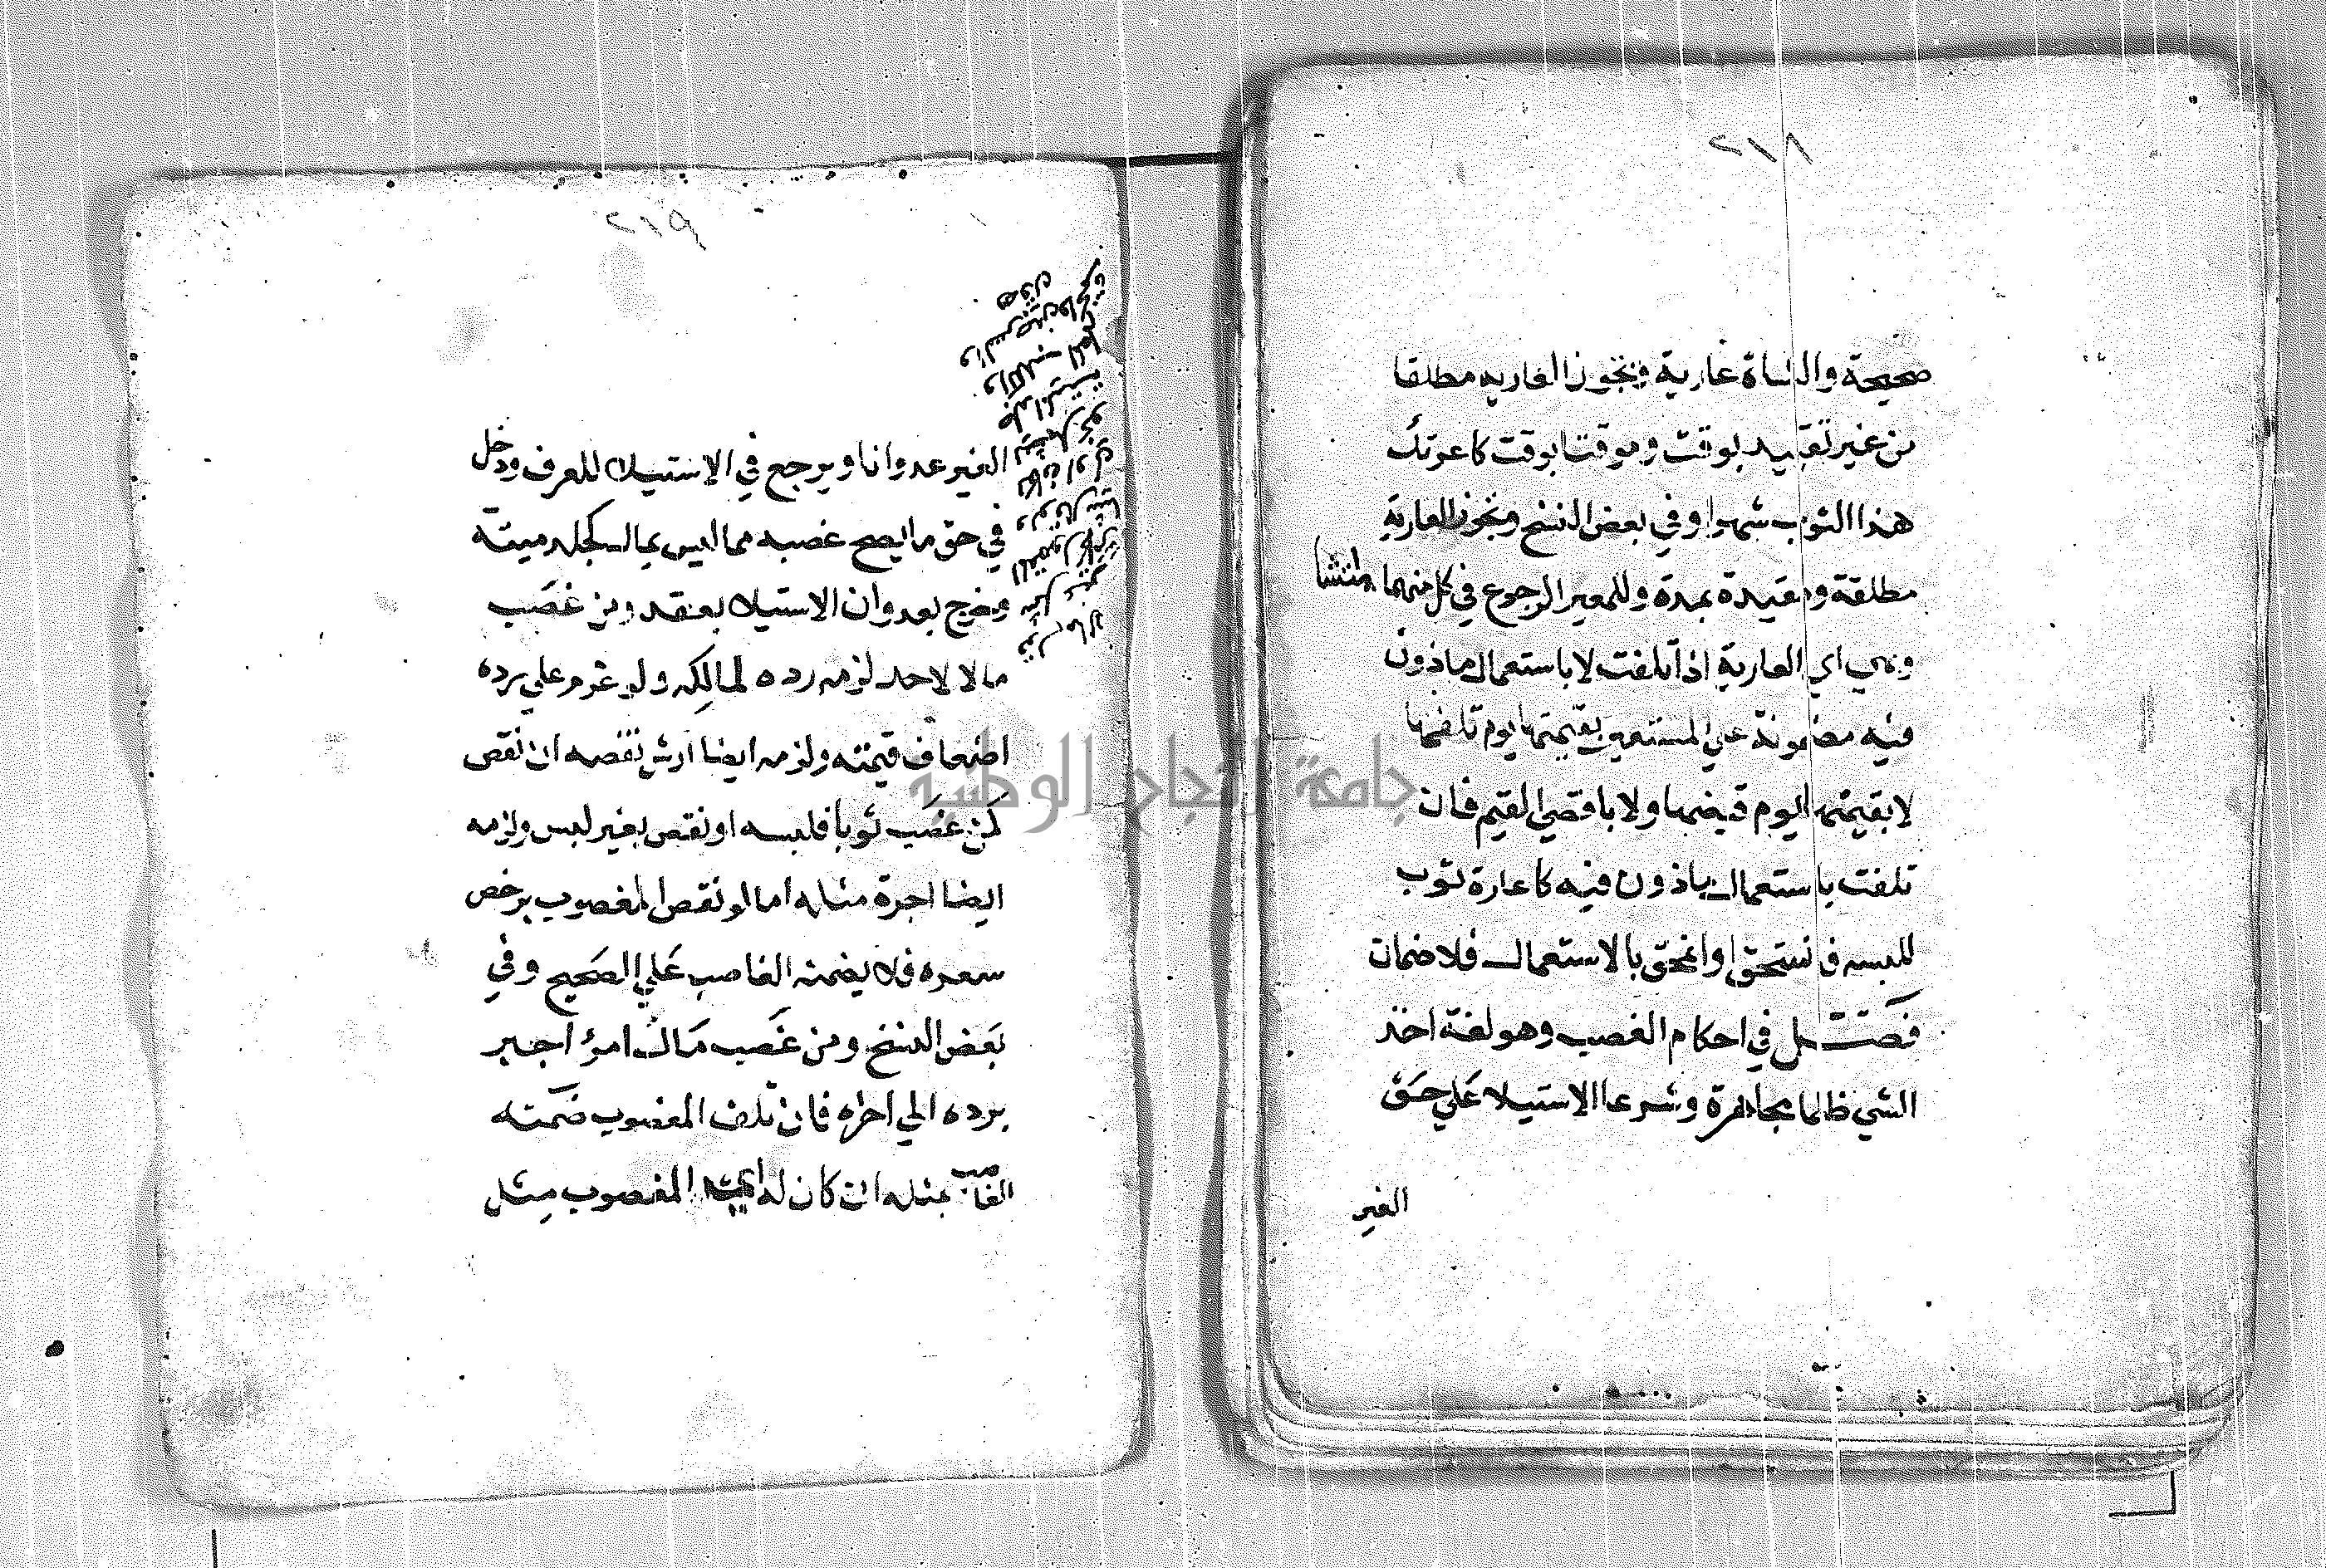 ٢١٨
صحيحة والشاة عارية وتجوز العارية مطلقا
من غير تقييد بوقت وموقتا بوقت كاعرتك
هذا الثوب شهرا وفي بعض النسخ وتجوز العارية
مطلقة ومقيدة بمدة وللمعير الرجوع في كل منهما متى شا
وهي اي العارية اذا تلفت لا باستعمال ماذون
فيه مضمونة علي المستعير بقيمتها يوم تلفها
لا بقيمتها يوم قبضها ولا باقصي القيم فان
تلفت باستعمال ماذون فيه كاعارة ثوب
للبسه فانسحق او انمحق بالاستعمال فلا ضمان
فصل في احكام الغصب وهو لغة اخذ
الشي ظلما مجاهرة وشرعا الاستيلا علي حق
الغير
٢١٩
الغير عدوانا ويرجع في الاستيلا للعرف ودخل
في حق ما يصح غصبه مما ليس بمال كجلد ميتة
وخرج بعدوان الاستيلا بعقد ومن غصب
مالا لاحد لزمه رده لمالكه ولو غرم علي رده
اضعاف قيمته ولزمه ايضا ارش نقصه ان نقص
كمن غصب ثوبا فلبسه او نقص بغير لبس ولزمه
ايضا اجرة مثله اما لو نقص المغصوب برخص
سعره فلا يضمنه الغاصب علي الصحيح وفي
بعض النسخ ومن غصب مال امرؤ اجبر
برده الي اخره فان تلف المغصوب ضمنه
الغاصب بمثله ان كان له المغصوب مثل
جامعة النجاح الوطنية